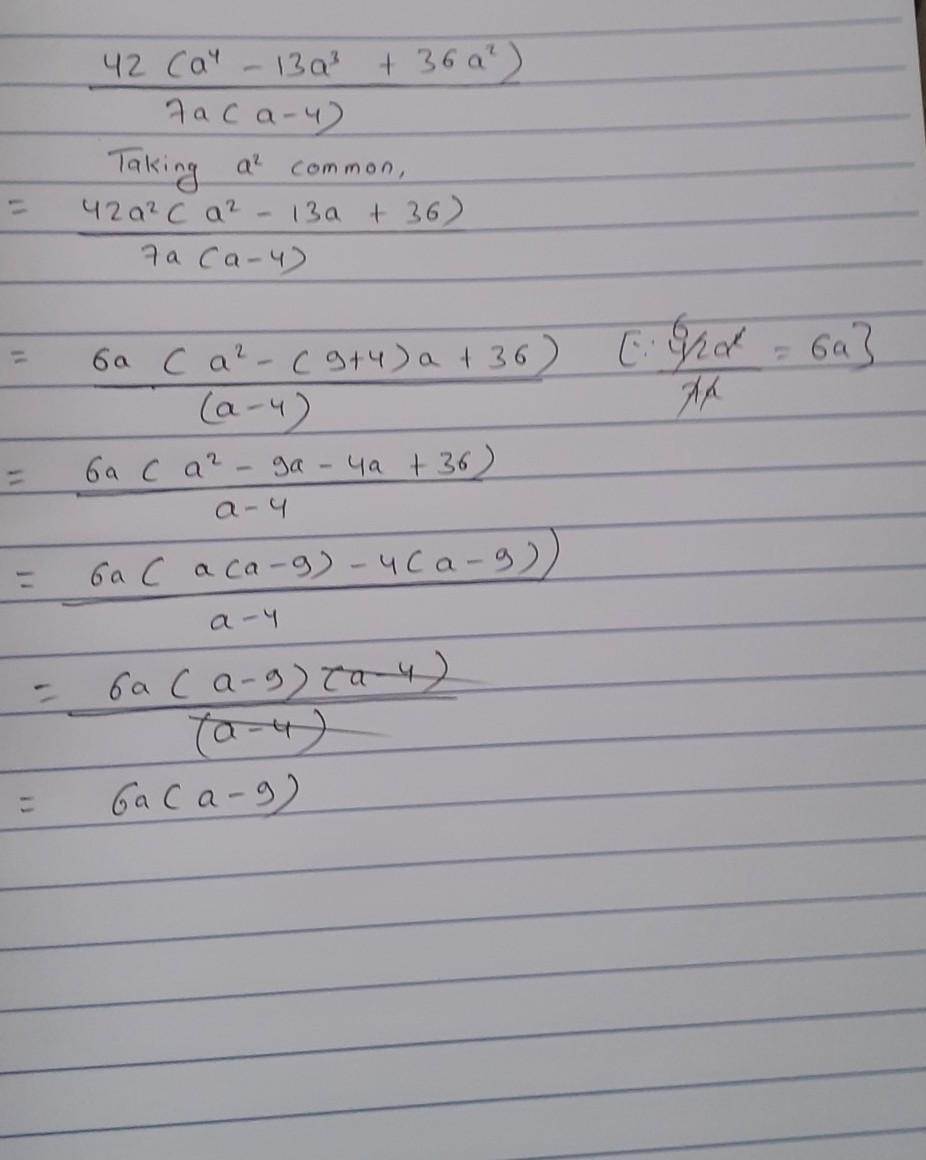 42 (a⁴ - 13a³ + 36a²)
7a (a-4)
Taking a² common,
= 42a² (a² - 13a + 36)
7a (a-4)
= 6a (a² - (9+4)a + 36) [∵ 42a² = 6a]
(a-4) 7a
= 6a (a² - 9a - 4a + 36)
a-4
= 6a (a(a-9) - 4(a-9))
a-4
= 6a (a-9) (a-4)
(a-4)
= 6a (a-9)